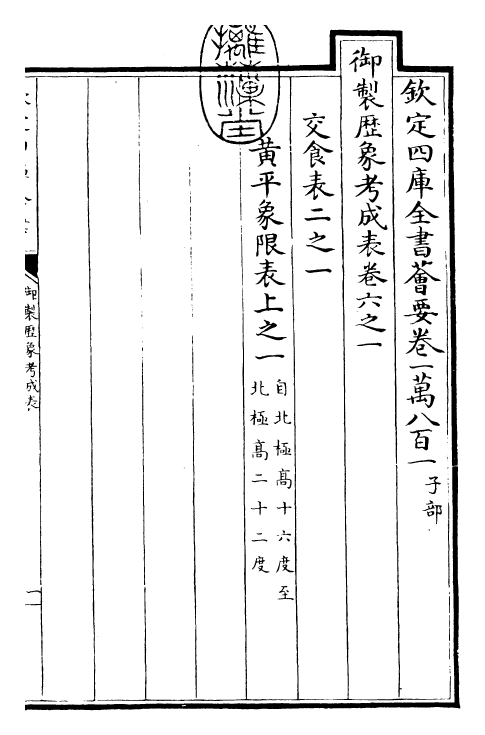 欽定四庫全書薈要卷一萬八百一 子部
御製歷象考成表卷六之一
交食表二之一
黃平象限表上之一 自北極髙十六度至
北極髙二十二度
御製歷象考成表